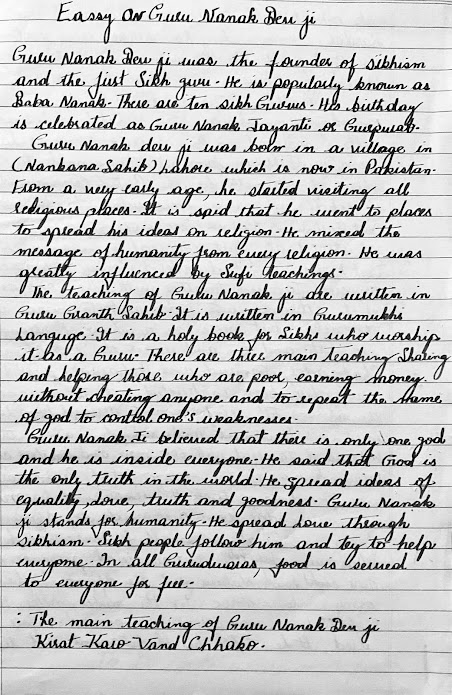 Eassy on Guru Nanak Dev ji
Guru Nanak Dev ji was the founder of sikhism
and the first Sikh guru. He is popularly known as
Baba Nanak. There are ten sikh Gurus. His birthday
is celebrated as Guru Nanak Jayanti or Gurpurab.
Guru Nanak dev ji was born in a village in
(Nankana Sahib) Lahore which is now in Pakistan.
From a very early age, he started visiting all
religious places. It is said that he went to places
to spread his ideas on religion. He mixed the
message of humanity from every religion. He was
greatly influenced by Sufi teachings.
The teaching of Guru Nanak ji are written in
Guru Granth Sahib. It is written in Gurumukhi
Languge. It is a holy book for Sikhs who worship
it as a Guru. There are three main teaching Sharing
and helping those who are poor, earning money
without cheating anyone and to repeat the name
of god to control one's weaknesses.
Guru Nanak Ji believed that there is only one god
and he is inside everyone. He said that God is
the only truth in the world. He spread ideas of
equality, love, truth and goodness. Guru Nanak
ji stands for humanity. He spread love through
sikhism. Sikh people follow him and try to help
everyone. In all Gurudwaras, food is served
to everyone for free.
: The main teaching of Guru Nanak Dev ji
Kirat Karo Vand Chhako.